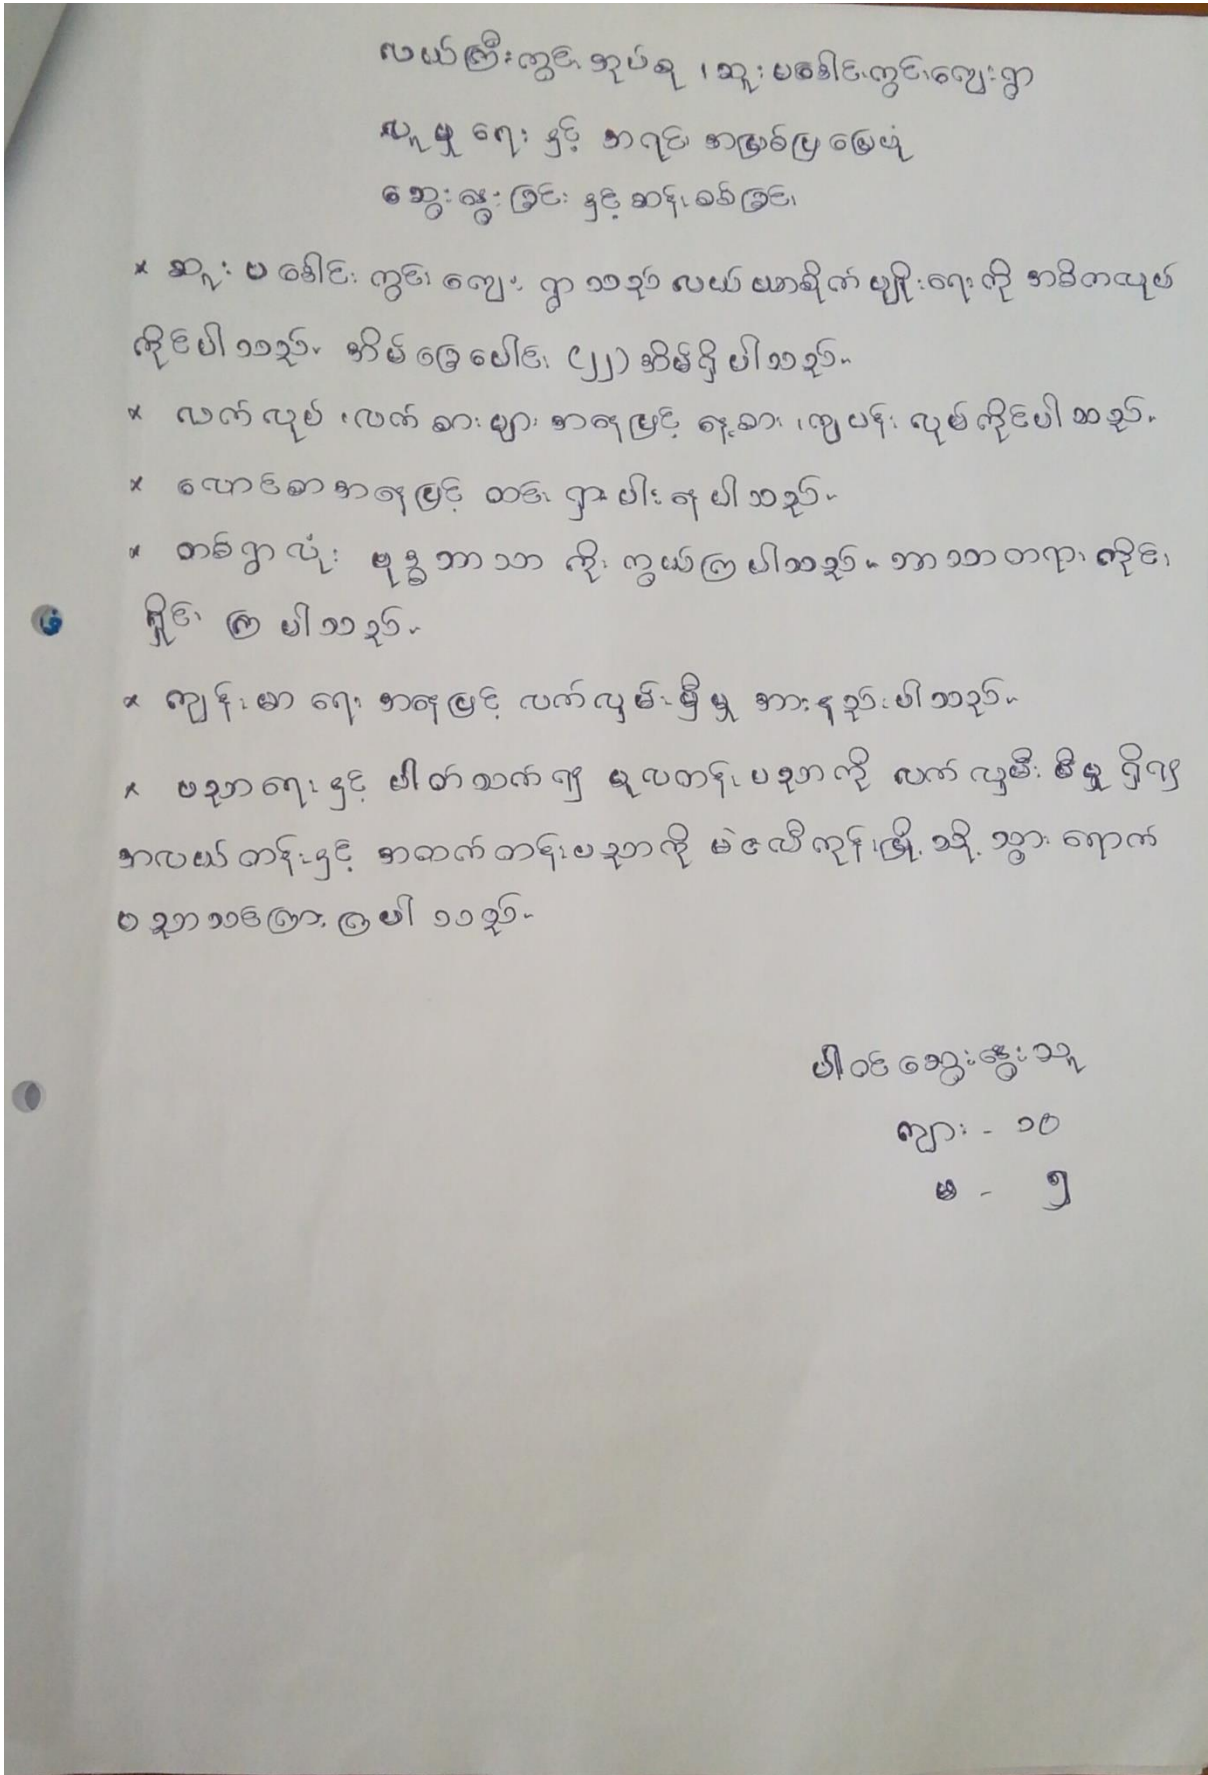 လယ်ကြီးကွင်းအုပ်စု ၊ ဆူးပခေါင်းကွင်းကျေးရွာ
လူမှုရေး နှင့် အရင်းအမြစ်ပြမြေပုံ
ဆွေးနွေးခြင်း နှင့် ဆန်းစစ်ခြင်း
× ဆူးပခေါင်းကွင်းကျေးရွာသည် လယ်ယာစိုက်ပျိုးရေးကို အဓိကလုပ်
ကိုင်ပါသည်။ အိမ်ခြေပေါင်း (၂၂) အိမ်ရှိပါသည်။
× လက်လုပ် ၊ လက်စားများ အနေဖြင့် နေ့စား ၊ ကျပန်း လုပ်ကိုင်ပါသည်။
× လောင်စာအနေဖြင့် ထင်းရှားပါးနေပါသည်။
× တစ်ရွာလုံး ဗုဒ္ဓဘာသာ ကိုးကွယ်ကြပါသည်။ ဘာသာတရားကိုင်း
ရှိုင်းကြပါသည်။
× ကျန်းမာရေး အနေဖြင့် လက်လှမ်းမှီမှု အားနည်းပါသည်။
× ပညာရေးနှင့် ပါတ်သက်၍ မူလတန်းပညာကို လက်လှမ်းမီမှုရှိ၍
အလယ်တန်းနှင့် အထက်တန်းပညာကို မဲဇလီကုန်းမြို့သို့ သွားရောက်
ပညာသင်ကြားကြပါသည်။
ပါဝင်ဆွေးနွေးသူ
ကျား - ၁၀
မ - ၅